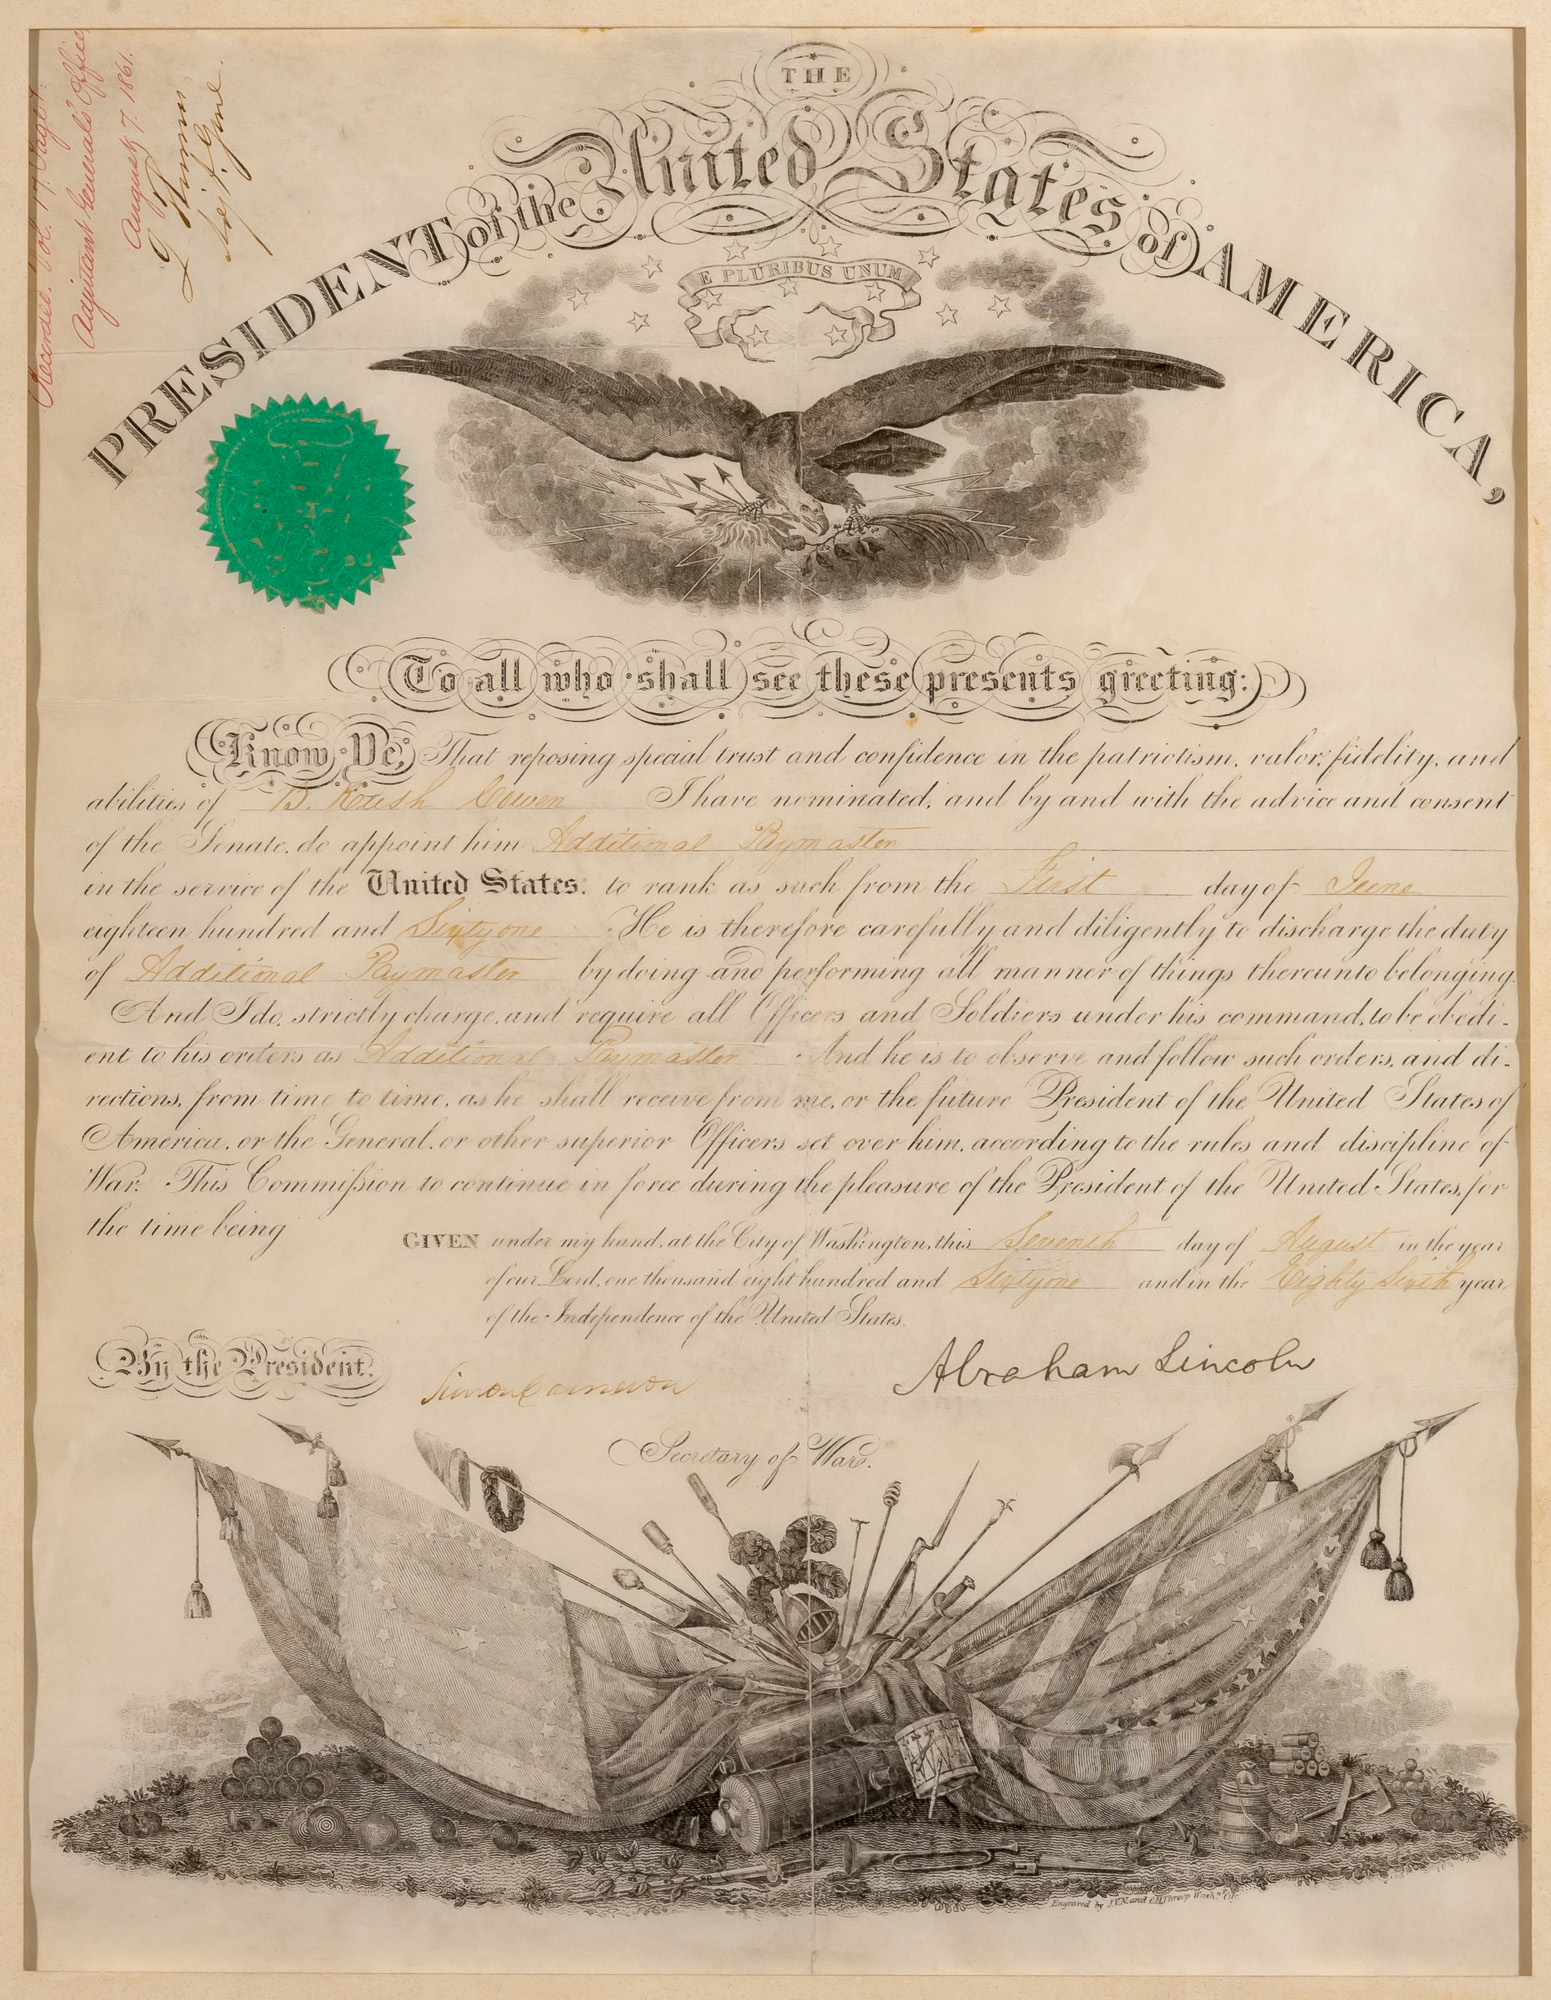 Recorded. Vol. 1 Page 1.
Adjutant General's Office
August 7. 1861.
L Thomas
Adjt. Genl.
THE
PRESIDENT of the United States of AMERICA,
E PLURIBUS UNUM
To all who shall see these presents greeting:
Know Ye, That reposing special trust and confidence in the patriotism, valor, fidelity, and
abilities of B. Rush Cowen I have nominated, and by and with the advice and consent
of the Senate, do appoint him Additional Paymaster
in the service of the United States: to rank as such from the First day of June
eighteen hundred and Sixty one He is therefore carefully and diligently to discharge the duty
of Additional Paymaster by doing and performing all manner of things thereunto belonging.
And I do, strictly charge, and require all Officers and Soldiers under his command, to be obedi-
ent to his orders as Additional Paymaster And he is to observe and follow such orders, and di-
rections, from time to time, as he shall receive from me, or the future President of the United States of
America, or the General, or other superior Officers set over him, according to the rules and discipline of
War. This Commission to continue in force during the pleasure of the President of the United States, for
the time being
GIVEN under my hand, at the City of Washington, this Seventh day of August in the year
of our Lord, one thousand eight hundred and Sixty one and in the Eighty Sixth year
of the Independence of the United States.
By the President.
Abraham Lincoln
Simon Cameron
Secretary of War.
Engraved by J.V.N. and O.H. Throop Washn. City